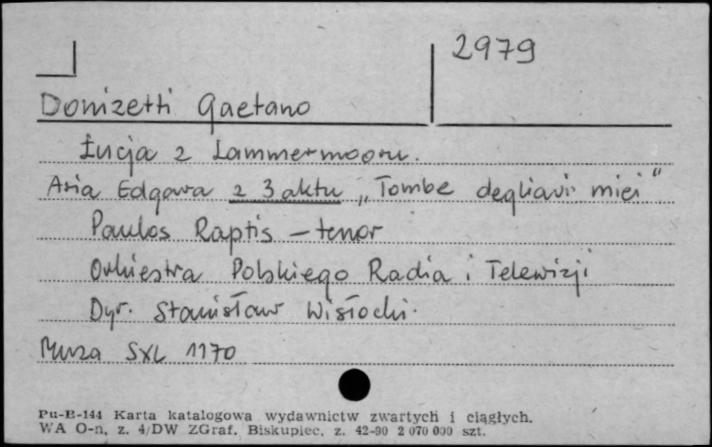 2979
Donizetti Gaetano
Łucja z Lammermooru.
Aria Edgara z 3 aktu „Tombe degliavi miei"
Paulos Raptis – tenor
Orkiestra Polskiego Radia i Telewizji
Dyr. Stanisław Wisłocki.
Muza SXL 1170
Pu-B-144 Karta katalogowa wydawnictw zwartych i ciągłych.
WA O-n, z. 4/DW ZGraf. Biskupiec, z. 42-90 2 070 000 szt.